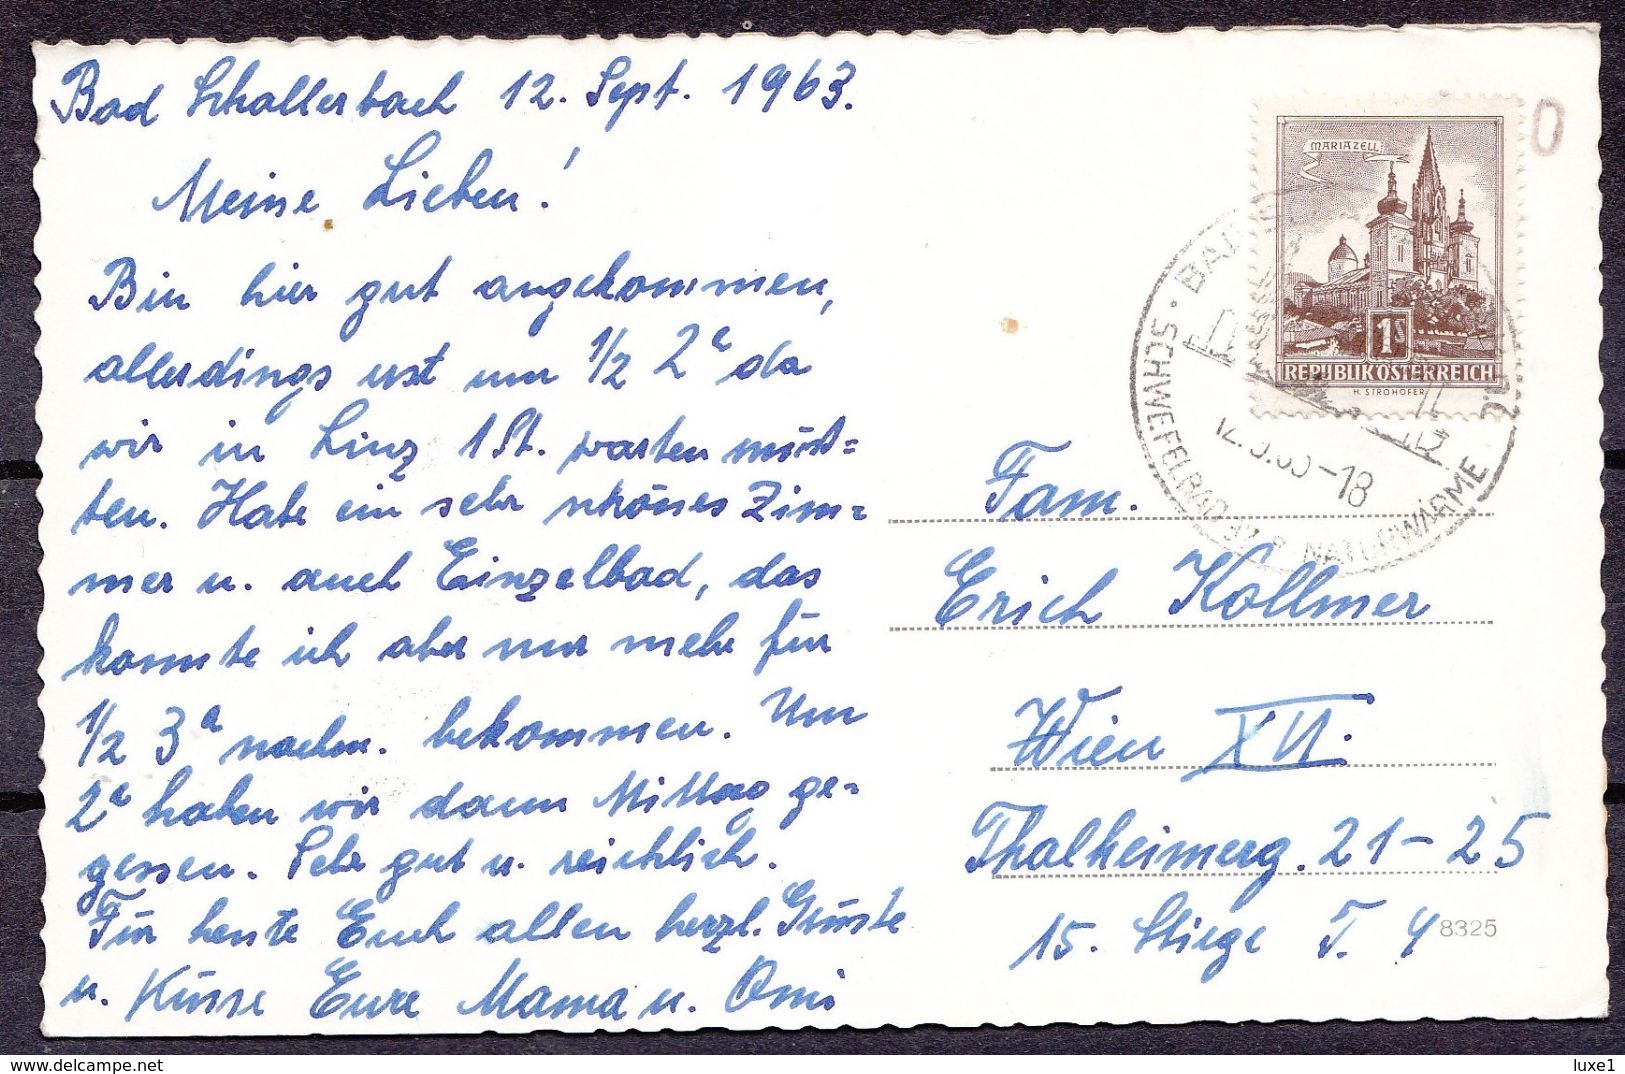 Bad Schallerbach 12. Sept. 1963.
Meine Lieben!
Bin hier gut angekommen,
allerdings erst um 1/2 2h da
wir in Linz 1 St. warten muß=
ten. Habe ein sehr schönes Zim=
mer u. auch Einzelbad, das
konnte ich aber nur mehr für
1/2 3h nachm. bekommen. Um
2h haben wir dann Mittag ge=
gessen. Sehr gut u. reichlich.
Für heute Euch allen herzl. Grüße
u. Küsse Eure Mama u. Omi
MARIAZELL
1S
REPUBLIK ÖSTERREICH
H. STROHOFER
SCHWEFELBAD 37° NATURWÄRME
-18
Fam.
Erich Kollmer
Wien XVI.
Thalheimerg. 21-25
15. Stiege T. 4
8325
delcampe.net
luxe1